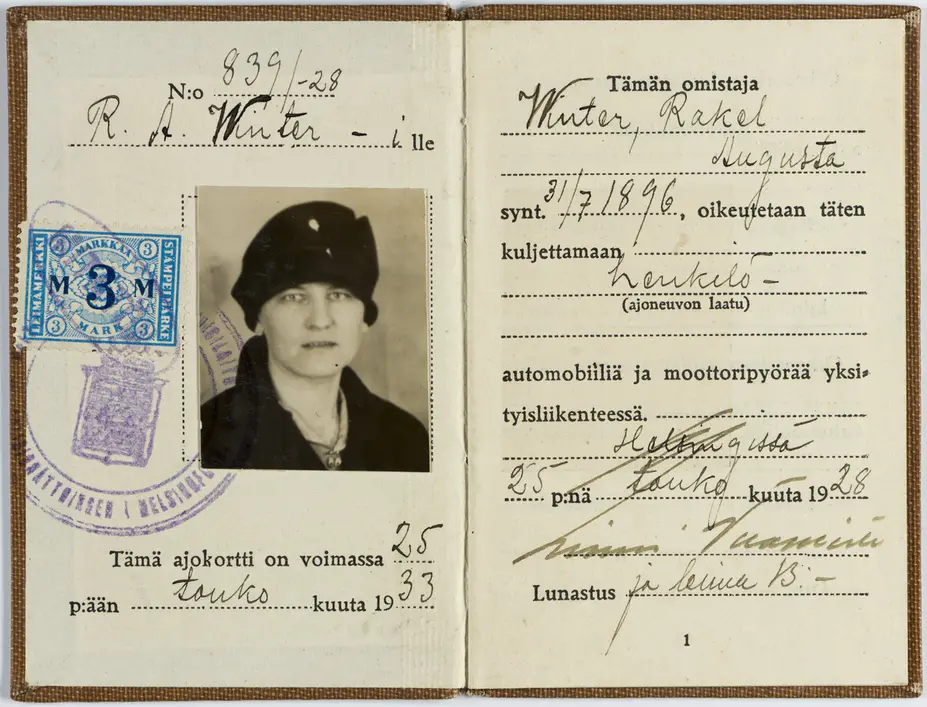 N:o 839/-28
R. A. Winter - i lle
LEIMAMERKKI
3 MARKKAA 3
M 3 M
3 MARK 3
STÄMPELMÄRKE
INRÄTTNINGEN I HELSINGFORS
Tämä ajokortti on voimassa 25
p:ään touko kuuta 1933
Tämän omistaja
Winter, Rakel
Augusta
synt. 31/7 1896, oikeutetaan täten
kuljettamaan
henkilö-
(ajoneuvon laatu)
automobiiliä ja moottoripyörää yksi-
tyisliikenteessä.
Helsingissä
25 p:nä touko kuuta 1928
Lunastus ja leima 13:-
1